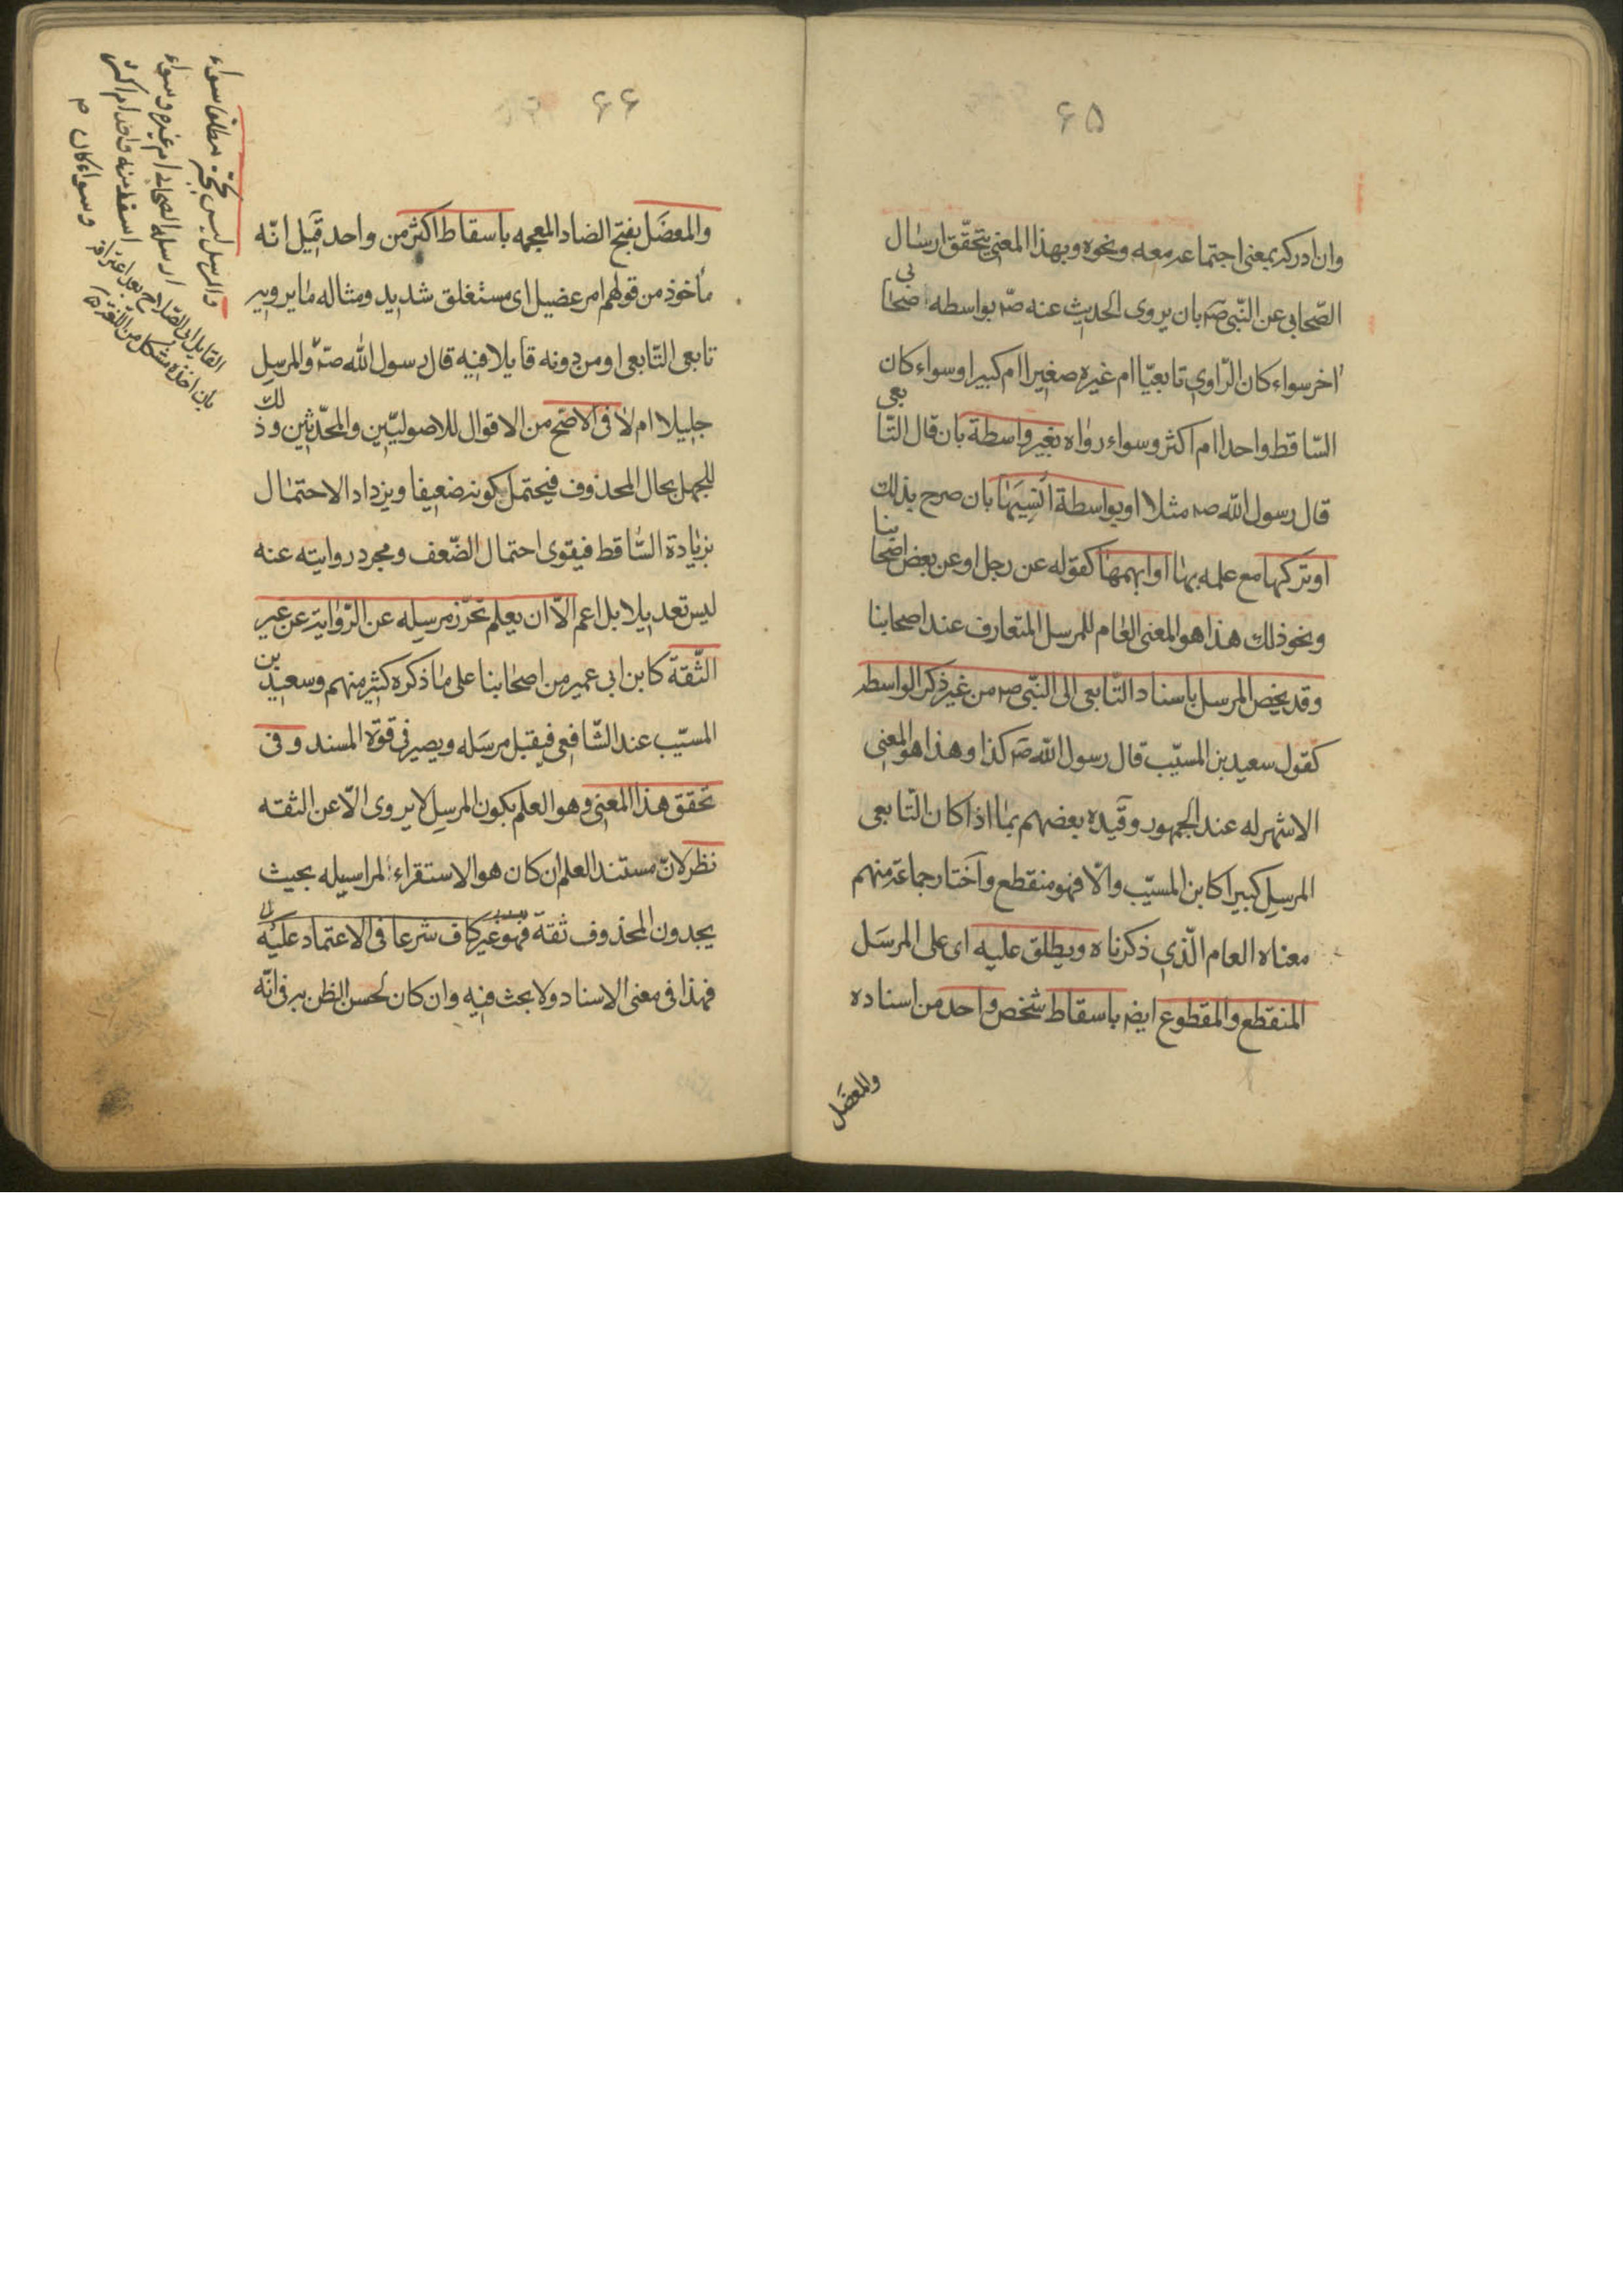 ۶۵
وان ادركه بمعنى اجتماعه معه ونحوه وبهذا المعنى يتحقق ارسال
الصّحابى عن النّبى صم بان يروى الحديث عنه صم بواسطه صحابى
اخر سواء كان الرّاوى تابعيّا ام غيره صغيرا ام كبيرا وسواء كان
السّاقط واحدا ام اكثر وسواء رواه بغير واسطة بان قال التّابعى
قال رسول الله صم مثلا او بواسطة أنسِيَها بان صرح بذلك
او تركها مع علمه بها او ابهمها كقوله عن رجل او عن بعض اصحابنا
ونحو ذلك هذا هو المعنى العام للمرسل المتعارف عند اصحابنا
وقد يخص المرسل باسناد التّابعى الى النّبى صم من غير ذكر الواسطه
كقول سعيد بن المسيّب قال رسول الله صم كذا وهذا هو المعنى
الاشهر له عند الجمهور وقيّده بعضهم بما اذا كان التّابعى
المرسِل كبيرا كابن المسيّب والّا فهو منقطع واختار جماعة منهم
معناه العام الّذى ذكرناه ويطلق عليه اى على المرسَل
المنقطع والمقطوع ايضم باسقاط شخص واحد من اسناده
والمعضَل
۶۶
والمعضَل بفتح الضاد المعجمه باسقاط اكثر من واحد قيل انّه
مأخوذ من قولهم امر عضيل اى مستغلق شديد ومثاله ما يرويه
تابعى التّابعى او من دونه قايلا فيه قال رسول الله صم والمرسِل
جليلا ام لا فى الاصح من الاقوال للاصوليّين والمحدّثين وذلك
للجهل بحال المحذوف فيحتمل كونه ضعيفا ويزداد الاحتمال
بزيادة السّاقط فيقوى احتمال الضّعف ومجرد روايته عنه
ليس تعديلا بل اعم الّا ان يعلم تحرّز مرسِله عن الرّواية عن غير
الثّقة كابن ابى عمير من اصحابنا على ما ذكره كثير منهم وسعيد بن
المسيّب عند الشّافعى فيقبل مرسَله ويصير فى قوّة المسند وفى
تحقق هذا المعنى وهو العلم بكون المرسِل لا يروى الّا عن الثقه
نظر لانّ مستند العلم ان كان هو الاستقراء لمراسيله بحيث
يجدون المحذوف ثقة فهو غير كاف شرعا فى الاعتماد عليه
فهذا فى معنى الاسناد ولا بحث فيه وان كان لحسن الظن به فى انّه
والمرسل ليس بحجّة مطلقا سواء
ارسله الصحابى ام غيره وسواء
اسقط منه واحد ام اكثر
وسواء كان م
القايل ابن الصّلاح بعد اعترافه
بان اخذه مشكل من اللغة